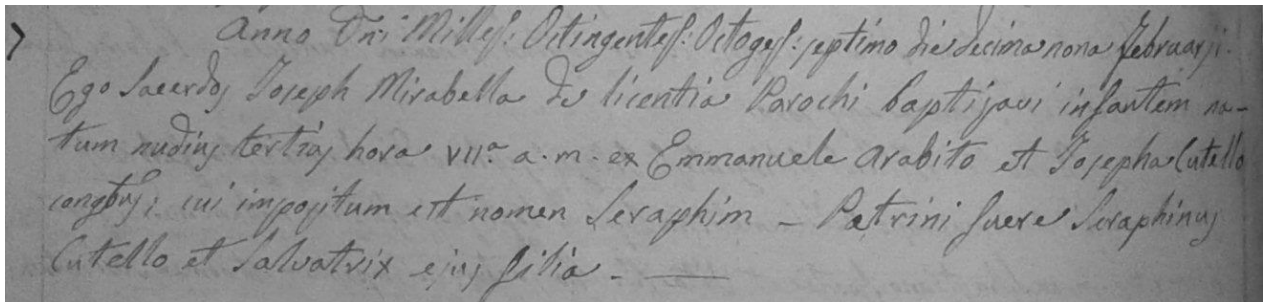 Anno Dni Milles: Octingentes: Octoges: septimo die decima nona Februarji.
Ego Sacerdos Joseph Mirabella de licentia Parochi baptisavi infantem na-
tum nudius tertius hora VIIa a.m. ex Emmanuele Arabito et Josepha Cutello
congbus; cui impositum est nomen Seraphim - Patrini fuere Seraphinus
Cutello et Salvatrix ejus filia. -